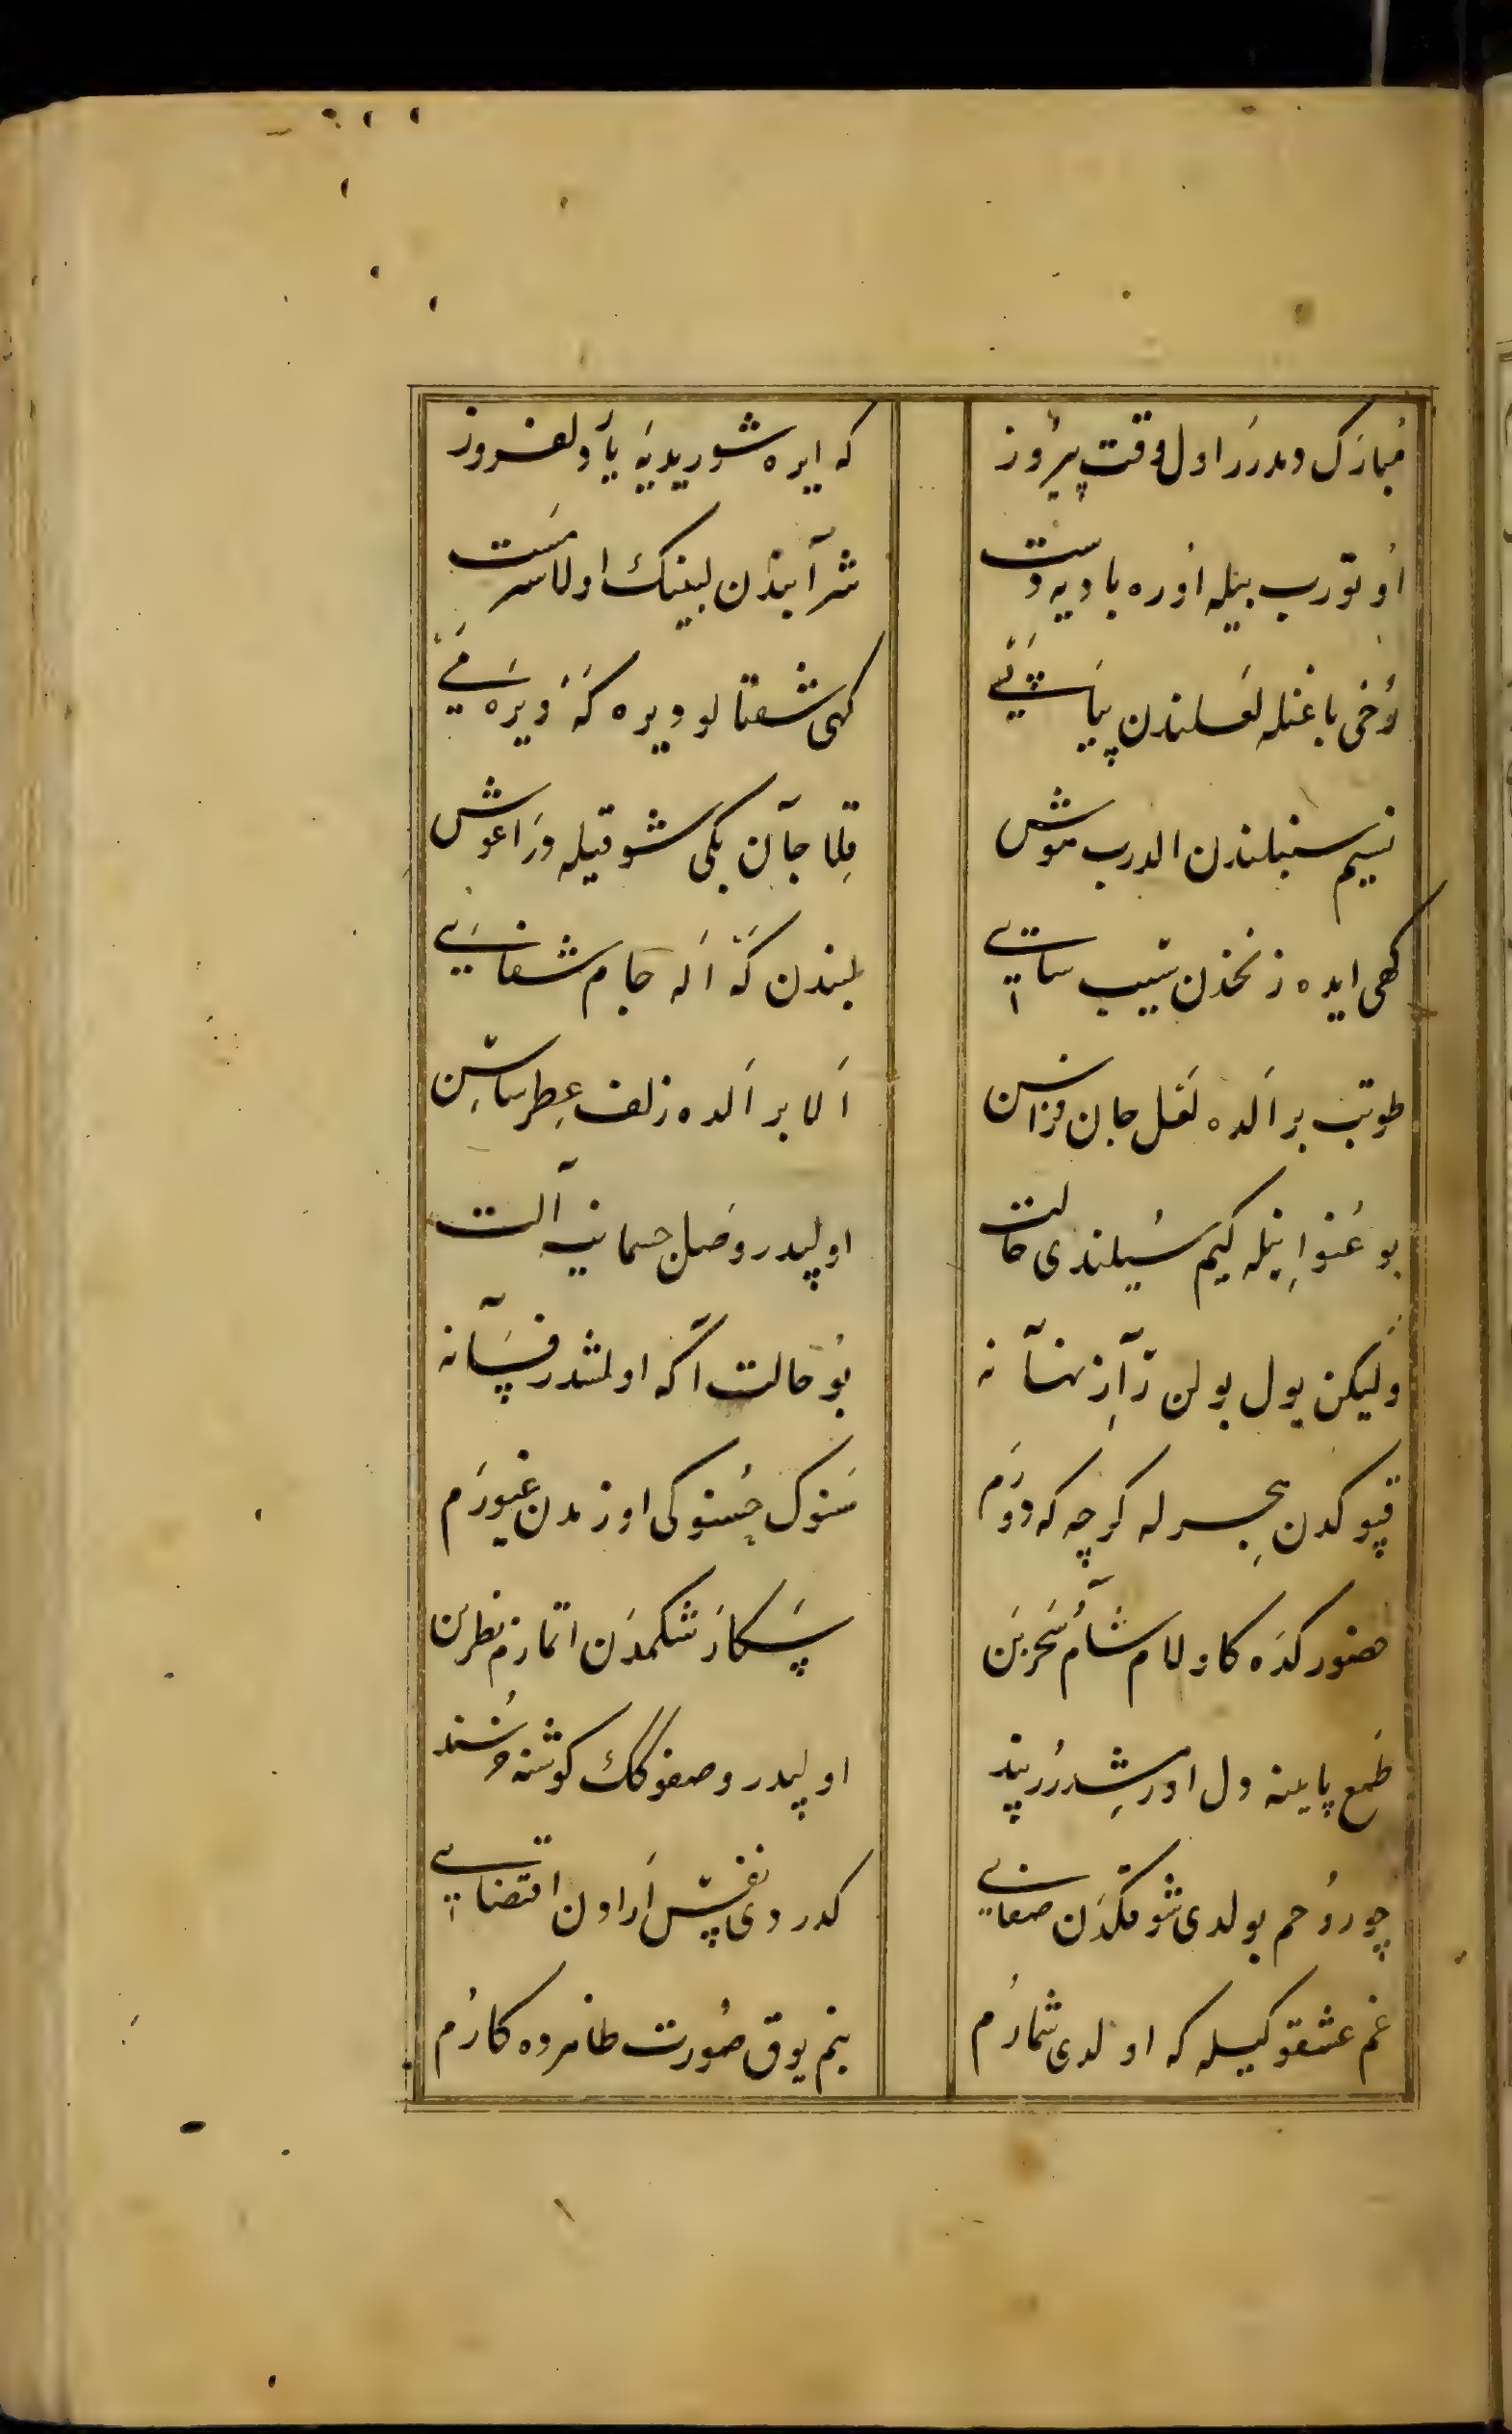 مُبارَک دمدرَر اول وقت پیرُوز
که ایره شوریدیَه یاَر دلفروز
اُوتورب بیله اُوره بادیه دست
شرآبندن لبینک اولا سرمَست
رُخی باغنله لَعلندن پیاپَی
کهی شفتالو ویره کَه ویرَه مَی
نسیم سنبلندن الدرب هوش
قِلا جآن بکی شوقیله دَراغوش
کهی ایده زنخدن سیب ساتی
لبندن کَه اَله جام شفایی
طوتب بر اَلده لَعل جان فزاسن
اَلا بر اَلده زلف عِطرساسِن
بو عُنوانِیله کیم سُیلندی حالت
اولپدر وصَل جسمانیه آلت
ولیکن یول بولن رآزِ نهانه
بُو حالت آکه اولمشدر فسَآنه
قپوکدن هِجرله کرچه که دورَم
سَنوک حُسنوکی اوزمدن غیورَم
حضورکدَه کاولام شآمُ سَحَر بَن
رَشکمدَن اتمازم نظر بَن
طَمع پاینه دل اورمشِدرُر بند
اولپدر وصفوکک کوشنه خُرسند
چو رُوحم بولدی شوقکدَن صفایی
کدردی نفس اَرادن اقتضایی
غم عشقوکیله که اولدی شمارُم
بنم یوق صُورت ظاهرده کارُم